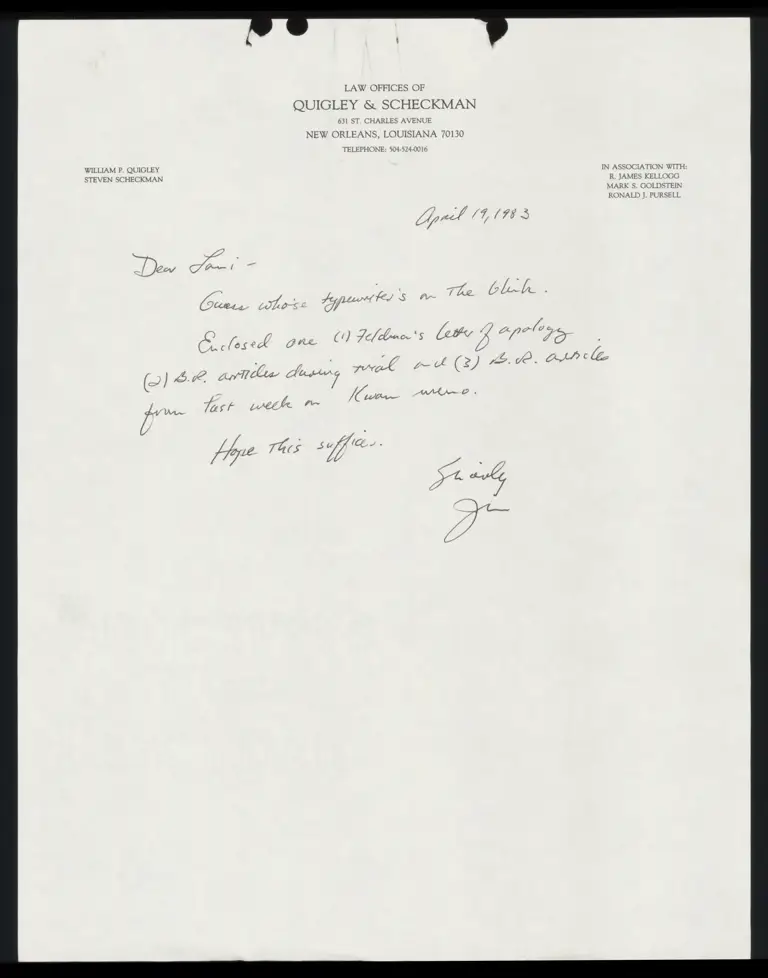 LAW OFFICES OF
QUIGLEY & SCHECKMAN
631 ST. CHARLES AVENUE
NEW ORLEANS, LOUISIANA 70130
TELEPHONE: 504-524-0016
WILLIAM P. QUIGLEY
STEVEN SCHECKMAN
IN ASSOCIATION WITH:
R. JAMES KELLOGG
MARK S. GOLDSTEIN
RONALD J. PURSELL
April 19, 1983
Dear Lani -
Guess who's typewriter's on the blink.
Enclosed are (1) Feldman's letter of apology
(2) B.R. articles during trial and (3) B.R. articles
from last week on Kwan memo.
Hope this suffices.
Sincerely
Jim